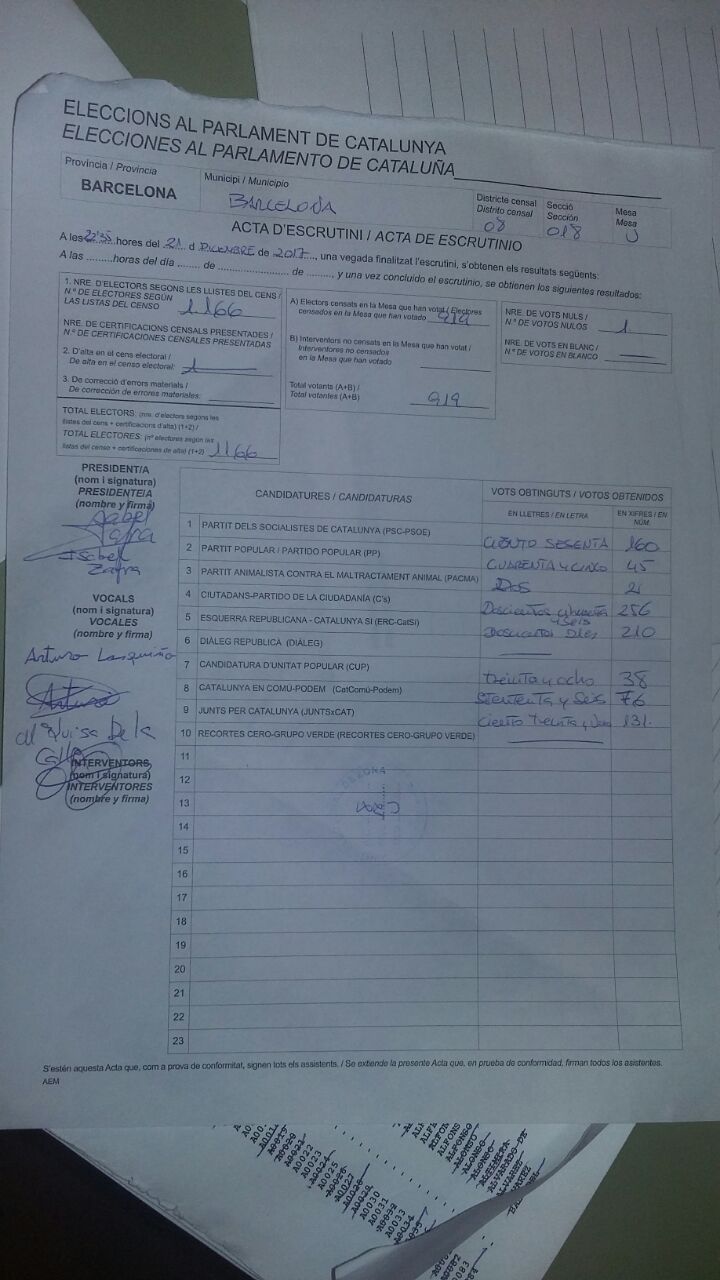 ELECCIONS AL PARLAMENT DE CATALUNYA
ELECCIONES AL PARLAMENTO DE CATALUÑA
Província / Provincia
BARCELONA
Municipi / Municipio
BARCELONA
Districte censal
Distrito censal
08
Secció
Sección
018
Mesa
Mesa
U
ACTA D'ESCRUTINI / ACTA DE ESCRUTINIO
A les 22'35 hores del 21 d DICIEMBRE de 2017, una vegada finalitzat l'escrutini, s'obtenen els resultats següents:
A las .........horas del día ....... de ........................ de ........., y una vez concluido el escrutinio, se obtienen los siguientes resultados:
1. NRE. D'ELECTORS SEGONS LES LLISTES DEL CENS /
N.º DE ELECTORES SEGÚN
LAS LISTAS DEL CENSO
1166
NRE. DE CERTIFICACIONS CENSALS PRESENTADES /
N.º DE CERTIFICACIONES CENSALES PRESENTADAS
2. D'alta en el cens electoral /
De alta en el censo electoral:
3. De correcció d'errors materials /
De corrección de errores materiales:
TOTAL ELECTORS: (nre. d'electors segons les
llistes del cens + certificacions d'alta) (1+2) /
TOTAL ELECTORES: (nº electores según las
listas del censo + certificaciones de alta) (1+2) 1166
A) Electors censats en la Mesa que han votat / Electores
censados en la Mesa que han votado 919
B) Interventors no censats en la Mesa que han votat /
Interventores no censados
en la Mesa que han votado
Total votants (A+B) /
Total votantes (A+B)
919
NRE. DE VOTS NULS /
N.º DE VOTOS NULOS
1
NRE. DE VOTS EN BLANC /
N.º DE VOTOS EN BLANCO
PRESIDENT/A
(nom i signatura)
PRESIDENTE/A
(nombre y firma)
Isabel
Zafra
VOCALS
(nom i signatura)
VOCALES
(nombre y firma)
Arturo
Arturo
INTERVENTORS
(nom i signatura)
INTERVENTORES
(nombre y firma)
CANDIDATURES / CANDIDATURAS
VOTS OBTINGUTS / VOTOS OBTENIDOS
EN LLETRES / EN LETRA
EN XIFRES / EN NÚM.
1 PARTIT DELS SOCIALISTES DE CATALUNYA (PSC-PSOE) CIENTO SESENTA 160
2 PARTIT POPULAR / PARTIDO POPULAR (PP) CUARENTA Y CINCO 45
3 PARTIT ANIMALISTA CONTRA EL MALTRACTAMENT ANIMAL (PACMA) DOS 2
4 CIUTADANS-PARTIDO DE LA CIUDADANÍA (C's) y seis 256
5 ESQUERRA REPUBLICANA - CATALUNYA SÍ (ERC-CatSí) 210
6 DIÀLEG REPUBLICÀ (DIÀLEG)
7 CANDIDATURA D'UNITAT POPULAR (CUP) treinta y ocho 38
8 CATALUNYA EN COMÚ-PODEM (CatComú-Podem) y Seis 76
9 JUNTS PER CATALUNYA (JUNTSxCAT) Ciento treinta y 131
10 RECORTES CERO-GRUPO VERDE (RECORTES CERO-GRUPO VERDE)
11
12
13
14
15
16
17
18
19
20
21
22
23
S'estén aquesta Acta que, com a prova de conformitat, signen tots els assistents. / Se extiende la presente Acta que, en prueba de conformidad, firman todos los asistentes.
AEM